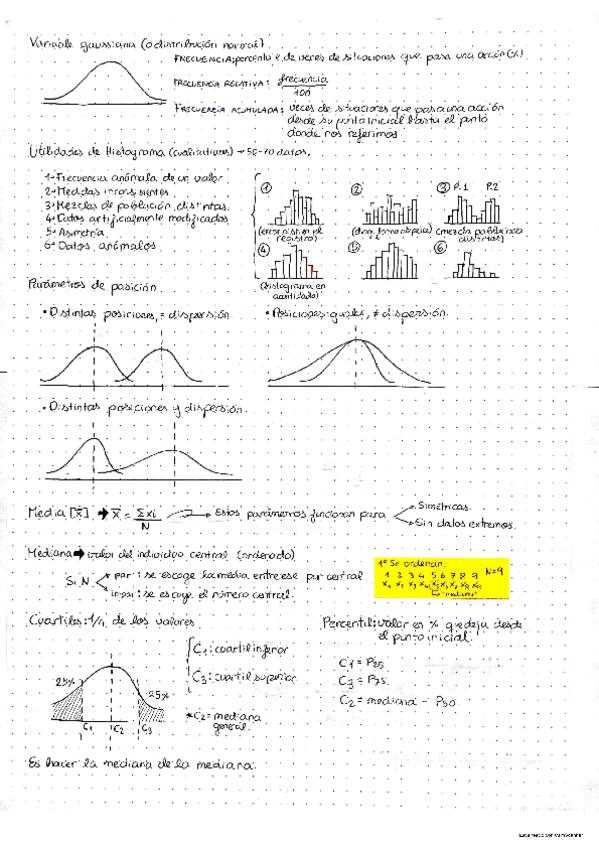 Variable gaussiana (o distribución normal)
FRECUENCIA: porcentaje de veces de situaciones que pasa una acción (x)
FRECUENCIA RELATIVA: frecuencia
100
FRECUENCIA ACUMULADA: veces de situaciones que pasa una acción
desde su punto inicial hasta el punto
donde nos referimos
Utilidades de Histograma (cualitativas) → 50-70 datos.
1- Frecuencia anómala de un valor
2- Medidas inconsistentes
3- Mezclas de población distintas
4- Datos artificialmente modificados
5- Asimetría
6- Datos anómalos
① ② ③ P.1 P.2
(error sist en el
registro)
(mezcla poblaciones
distintas)
④ ⑤ ⑥
(histograma en
acantilado)
Parámetros de posición
• Distintas posiciones, = dispersión
• Posiciones iguales, ≠ dispersión.
• Distintas posiciones y dispersión.
Media [x̄] → x̄ = Σxi
N
Estos parámetros funcionan para
Simétricas.
Sin datos extremos.
Mediana → valor del individuo central (ordenado)
Si N
par: se escoge la media entre ese par central
impar: se escoge el número central.
1º Se ordenan:
1 2 3 4 5 6 7 8 9 N=9
x₁ x₂ x₃ x₄ x₅ x₆ x₇ x₈ x₉
mediana
Cuartiles: 1/4 de los valores
C₁: cuartil inferior
C₃: cuartil superior
*C₂ = mediana
general.
25%
25%
C₁ C₂ C₃
Percentil: valor en % que deja desde
el punto inicial
C₁ = P₂₅
C₃ = P₇₅
C₂ = mediana - P₅₀
Es hacer la mediana de la mediana.